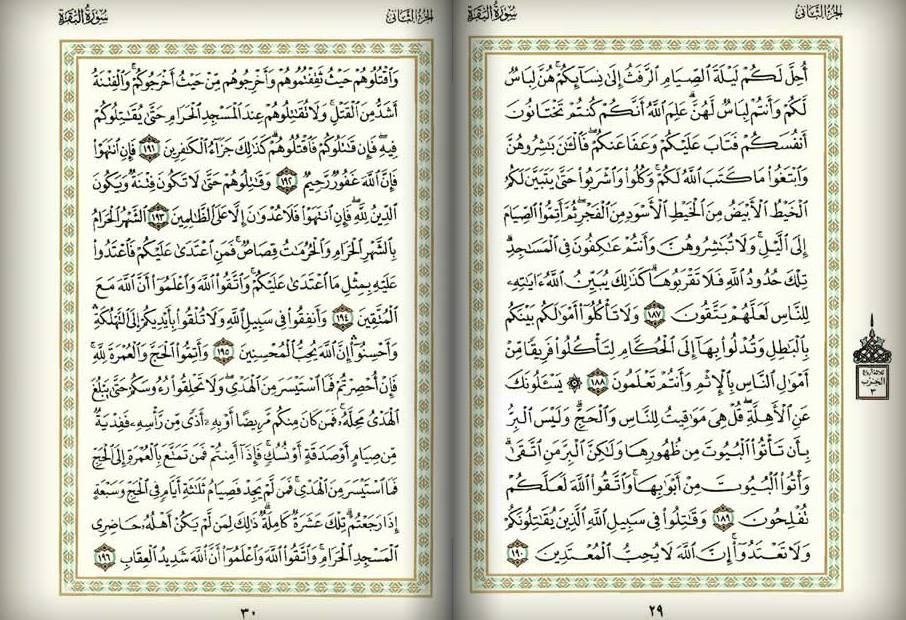 الجزء الثاني
سورة البقرة
أُحِلَّ لَكُمْ لَيْلَةَ ٱلصِّيَامِ ٱلرَّفَثُ إِلَىٰ نِسَآئِكُمْ ۚ هُنَّ لِبَاسٌ
لَّكُمْ وَأَنتُمْ لِبَاسٌ لَّهُنَّ ۗ عَلِمَ ٱللَّهُ أَنَّكُمْ كُنتُمْ تَخْتَانُونَ
أَنفُسَكُمْ فَتَابَ عَلَيْكُمْ وَعَفَا عَنكُمْ ۖ فَٱلْـَٰٔنَ بَـٰشِرُوهُنَّ
وَٱبْتَغُوا۟ مَا كَتَبَ ٱللَّهُ لَكُمْ ۚ وَكُلُوا۟ وَٱشْرَبُوا۟ حَتَّىٰ يَتَبَيَّنَ لَكُمُ
ٱلْخَيْطُ ٱلْأَبْيَضُ مِنَ ٱلْخَيْطِ ٱلْأَسْوَدِ مِنَ ٱلْفَجْرِ ۖ ثُمَّ أَتِمُّوا۟ ٱلصِّيَامَ
إِلَى ٱلَّيْلِ ۚ وَلَا تُبَـٰشِرُوهُنَّ وَأَنتُمْ عَـٰكِفُونَ فِى ٱلْمَسَـٰجِدِ ۗ
تِلْكَ حُدُودُ ٱللَّهِ فَلَا تَقْرَبُوهَا ۗ كَذَٰلِكَ يُبَيِّنُ ٱللَّهُ ءَايَـٰتِهِۦ
لِلنَّاسِ لَعَلَّهُمْ يَتَّقُونَ ١٨٧ وَلَا تَأْكُلُوٓا۟ أَمْوَٰلَكُم بَيْنَكُم
بِٱلْبَـٰطِلِ وَتُدْلُوا۟ بِهَآ إِلَى ٱلْحُكَّامِ لِتَأْكُلُوا۟ فَرِيقًا مِّنْ
أَمْوَٰلِ ٱلنَّاسِ بِٱلْإِثْمِ وَأَنتُمْ تَعْلَمُونَ ١٨٨ ۞ يَسْـَٔلُونَكَ
عَنِ ٱلْأَهِلَّةِ ۖ قُلْ هِىَ مَوَٰقِيتُ لِلنَّاسِ وَٱلْحَجِّ ۗ وَلَيْسَ ٱلْبِرُّ
بِأَن تَأْتُوا۟ ٱلْبُيُوتَ مِن ظُهُورِهَا وَلَـٰكِنَّ ٱلْبِرَّ مَنِ ٱتَّقَىٰ ۗ
وَأْتُوا۟ ٱلْبُيُوتَ مِنْ أَبْوَٰبِهَا ۚ وَٱتَّقُوا۟ ٱللَّهَ لَعَلَّكُمْ
تُفْلِحُونَ ١٨٩ وَقَـٰتِلُوا۟ فِى سَبِيلِ ٱللَّهِ ٱلَّذِينَ يُقَـٰتِلُونَكُمْ
وَلَا تَعْتَدُوٓا۟ ۚ إِنَّ ٱللَّهَ لَا يُحِبُّ ٱلْمُعْتَدِينَ ١٩٠
٢٩
ثلاثة أرباع
الحزب
٣
الجزء الثاني
سورة البقرة
وَٱقْتُلُوهُمْ حَيْثُ ثَقِفْتُمُوهُمْ وَأَخْرِجُوهُم مِّنْ حَيْثُ أَخْرَجُوكُمْ ۚ وَٱلْفِتْنَةُ
أَشَدُّ مِنَ ٱلْقَتْلِ ۚ وَلَا تُقَـٰتِلُوهُمْ عِندَ ٱلْمَسْجِدِ ٱلْحَرَامِ حَتَّىٰ يُقَـٰتِلُوكُمْ
فِيهِ ۖ فَإِن قَـٰتَلُوكُمْ فَٱقْتُلُوهُمْ ۗ كَذَٰلِكَ جَزَآءُ ٱلْكَـٰفِرِينَ ١٩١ فَإِنِ ٱنتَهَوْا۟
فَإِنَّ ٱللَّهَ غَفُورٌ رَّحِيمٌ ١٩٢ وَقَـٰتِلُوهُمْ حَتَّىٰ لَا تَكُونَ فِتْنَةٌ وَيَكُونَ
ٱلدِّينُ لِلَّهِ ۖ فَإِنِ ٱنتَهَوْا۟ فَلَا عُدْوَٰنَ إِلَّا عَلَى ٱلظَّـٰلِمِينَ ١٩٣ ٱلشَّهْرُ ٱلْحَرَامُ
بِٱلشَّهْرِ ٱلْحَرَامِ وَٱلْحُرُمَـٰتُ قِصَاصٌ ۚ فَمَنِ ٱعْتَدَىٰ عَلَيْكُمْ فَٱعْتَدُوا۟
عَلَيْهِ بِمِثْلِ مَا ٱعْتَدَىٰ عَلَيْكُمْ ۚ وَٱتَّقُوا۟ ٱللَّهَ وَٱعْلَمُوٓا۟ أَنَّ ٱللَّهَ مَعَ
ٱلْمُتَّقِينَ ١٩٤ وَأَنفِقُوا۟ فِى سَبِيلِ ٱللَّهِ وَلَا تُلْقُوا۟ بِأَيْدِيكُمْ إِلَى ٱلتَّهْلُكَةِ ۛ
وَأَحْسِنُوٓا۟ ۛ إِنَّ ٱللَّهَ يُحِبُّ ٱلْمُحْسِنِينَ ١٩٥ وَأَتِمُّوا۟ ٱلْحَجَّ وَٱلْعُمْرَةَ لِلَّهِ ۚ
فَإِنْ أُحْصِرْتُمْ فَمَا ٱسْتَيْسَرَ مِنَ ٱلْهَدْىِ ۖ وَلَا تَحْلِقُوا۟ رُءُوسَكُمْ حَتَّىٰ يَبْلُغَ
ٱلْهَدْىُ مَحِلَّهُۥ ۚ فَمَن كَانَ مِنكُم مَّرِيضًا أَوْ بِهِۦٓ أَذًى مِّن رَّأْسِهِۦ فَفِدْيَةٌ
مِّن صِيَامٍ أَوْ صَدَقَةٍ أَوْ نُسُكٍ ۚ فَإِذَآ أَمِنتُمْ فَمَن تَمَتَّعَ بِٱلْعُمْرَةِ إِلَى ٱلْحَجِّ
فَمَا ٱسْتَيْسَرَ مِنَ ٱلْهَدْىِ ۚ فَمَن لَّمْ يَجِدْ فَصِيَامُ ثَلَـٰثَةِ أَيَّامٍ فِى ٱلْحَجِّ وَسَبْعَةٍ
إِذَا رَجَعْتُمْ ۗ تِلْكَ عَشَرَةٌ كَامِلَةٌ ۗ ذَٰلِكَ لِمَن لَّمْ يَكُنْ أَهْلُهُۥ حَاضِرِى
ٱلْمَسْجِدِ ٱلْحَرَامِ ۚ وَٱتَّقُوا۟ ٱللَّهَ وَٱعْلَمُوٓا۟ أَنَّ ٱللَّهَ شَدِيدُ ٱلْعِقَابِ ١٩٦
٣٠